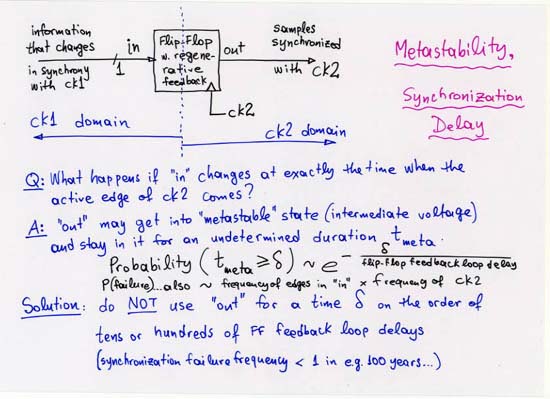 information that changes
in synchrony with ck1
in
1
Flip-Flop
w. regene-
rative
feedback
out
samples
synchronized
with ck2
ck2
Metastability,
Synchronization
Delay
ck1 domain
ck2 domain
Q: What happens if "in" changes at exactly the time when the
active edge of ck2 comes?
A: "out" may get into "metastable" state (intermediate voltage)
and stay in it for an undetermined duration t meta.
Probability (t meta ≥ δ) ~ e - δ / flip-flop feedback loop delay
P(failure)... also ~ frequency of edges in "in" × frequency of ck2
Solution: do NOT use "out" for a time δ on the order of
tens or hundreds of FF feedback loop delays
(synchronization failure frequency < 1 in e.g. 100 years...)